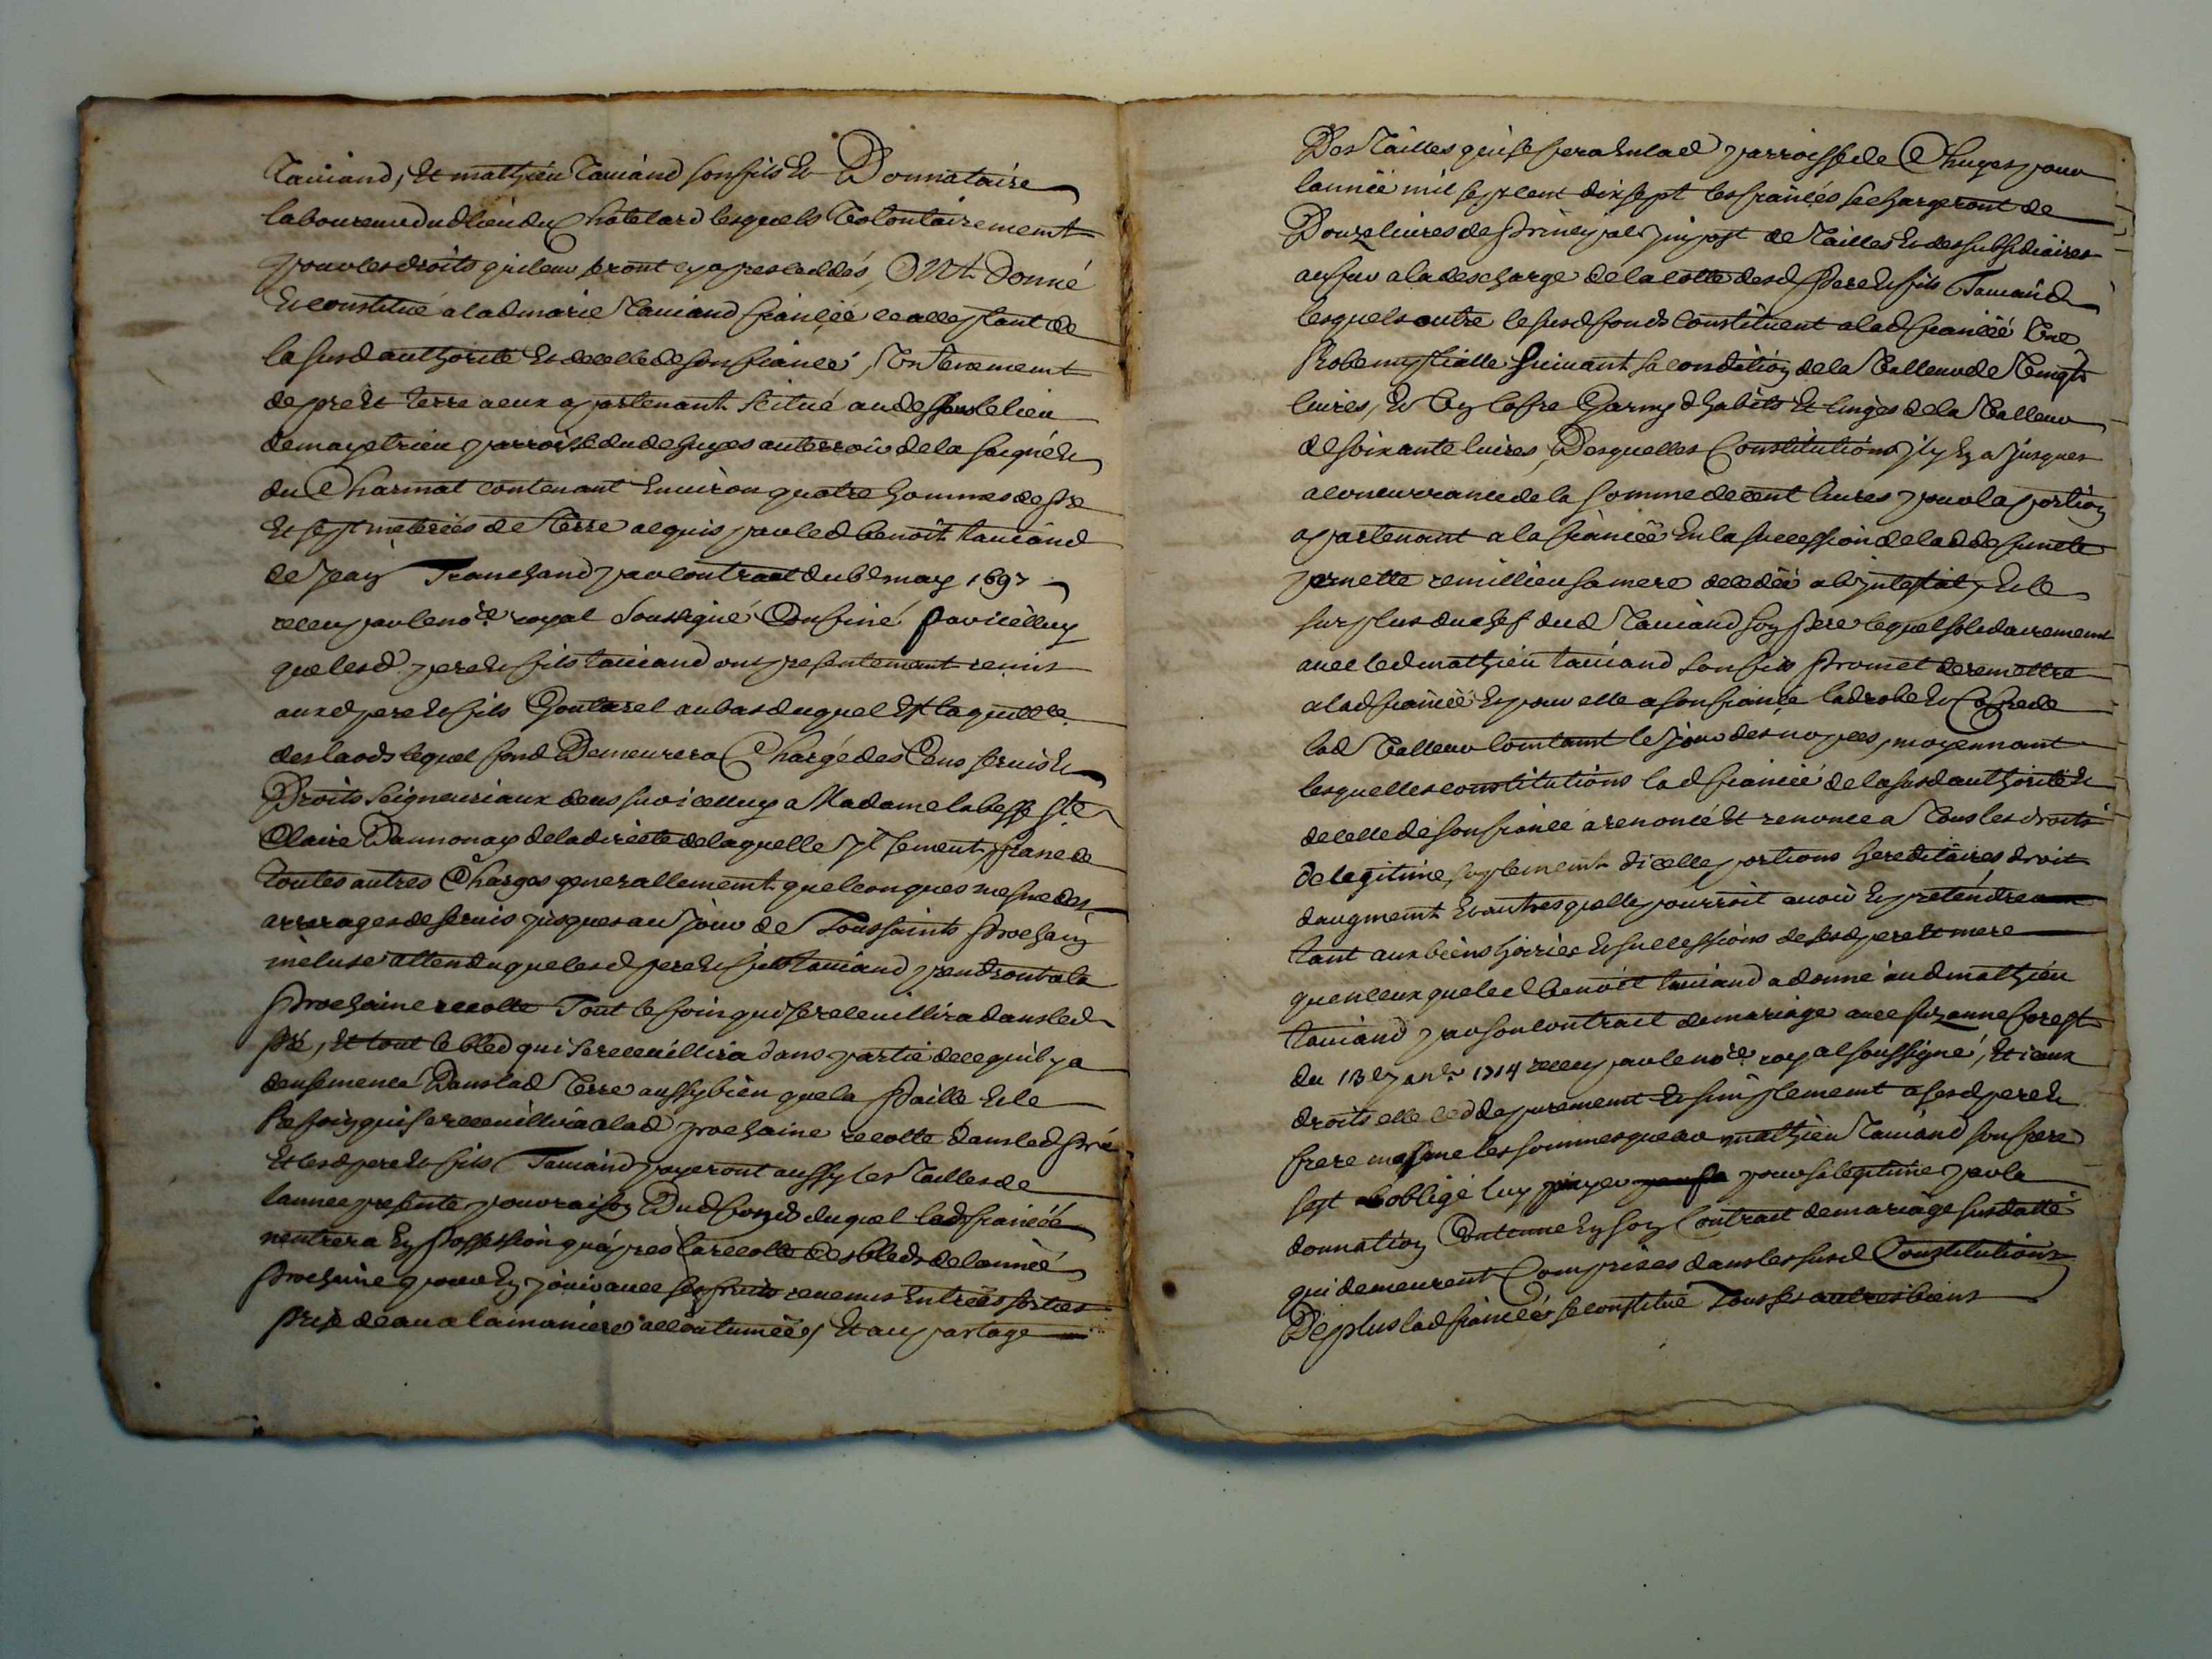 Tauiand, Et mathieu Tauiand son fils Et Donnataire
laboureur dud lieu du Chatelard lesquels Volontairement
pour les droits qui leur seront cy apres ceddés, Ont Donné
Et constitué a lad marie Tauiand fiancéé acceptant de
la susd authorité Et de celle de son fiancé, Un Tenement
de pré Et terre a eux apartenant scitué au dessous le lieu
de mayetrieu parroisse dud suyes au terroir de la saigné Et
du Charmat contenant Enuiron quatre hommes de pré
Et sept meterées de Terre acquis par led benoit tauiand
de Jean Tranchand par contract du 6e may 1697
receu par le nore royal soussigné Confiné par icelluy
que lesd pere Et fils tauiand ont presentement remis
auxd pere Et fils Goutarel au bas duquel Est la quittce
des laods lequel fond Demeurera Chargé des Cens seruis Et
Droits seigneuriaux deus sur icelluy a Madame labesse ste
Claire Dannonay de la directe de laquelle Jl se ment, franc de
toutes autres Charges generallement quelconques mesme des
arrerages de seruis jusques au jour de Toussaints prochain
incluse attendu que lesd pere Et fils tauiand prendront a la
prochaine recolte Tout le foin qui se receuillira dans led
pré, Et tout le bled qui se receuillira dans partie de ce quil y a
densemencé Dans lad Terre aussy bien que la paille Et le
Refoin qui se receuillira a lad prochaine recolte dans led pré
Et lesd pere Et fils Tauiand payeront aussy les Tailles de
lannee presente pour raison Dud fonds duquel lad fiancéé
nentrera En possession quapres la recolte des bleds de lannéé
prochaine pour En jouir auec ses fruits reuenus Entrées sorties
prise deau a la maniere accoutumèé, Et au partage
Des Tailles qui se fera En lad parroisse de Chuyes pour
lannéé mil sept cent dix sept les fiancés se chargeront de
Douze liures de principal jmpost de Tailles Et des subsidiaires
au fur a la descharge de la cotte desd Pere Et fils Tauiand
lesquels outre le susd fonds constituent a lad fiancéé Une
Robe nuptialle suiuant sa condition de la Valleur de Vingt
liures, Et Un cofre Garny dhabits Et linges de la Valleur
de soixante liures, Desquelles Constitutions jl y En a jusques
a concurrance de la somme de cent liures pour la portion
apartenant a la fiancéé En la succession de lad defuncte
pernette remillieu sa mere decedéé ab jntestat, Et le
surplus du chef dud Tauiand son pere lequel solidairement
auec led mathieu tauiand son fils promet de remettre
a lad fiancéé Et pour elle a son fiancé lad robe Et Cofre de
lad Valleur contant le jour des nopces, moyennant
lesquelles constitutions lad fiancéé de la susd authorité Et
de celle de son fiancé a renoncé Et renonce a Tous les droits
de legitime, suplement dicelle portions hereditaires droit
daugment Et autres quelle pourroit auoir Et pretendre
tant aux biens hoiries Et successions de sesd pere Et mere
quen ceux que led benoit tauiand a donné aud mathieu
tauiand par son contract de mariage auec suzanne forest
du 13e janr 1714 receu par le nore royal soussigné, Et iceux
droits elle cedde purement Et simplement a sesd pere Et
frere mesme les sommes que led mathieu Tauiand son frere
sest obligé luy payer pour sa legitime par la
donnation Contenue En son Contract de mariage susdatté
qui demeurent Comprises dans les susd Constitutions
De plus lad fiancéé se constitue Tous ses autres biens